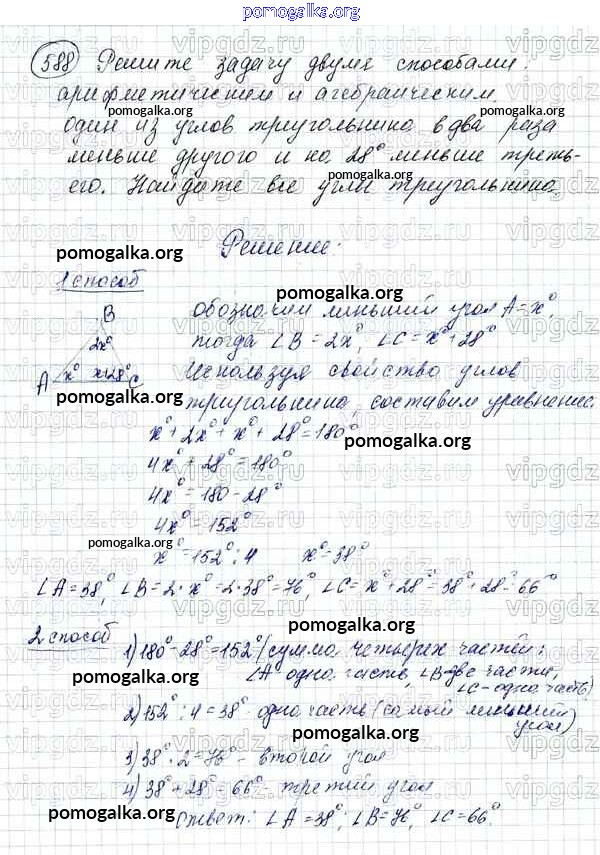 pomogalka.org
588 Решите задачу двумя способами:
арифметическим и агебраическим.
pomogalka.org
Один из углов треугольника в два раза
меньше другого и на 28° меньше треть-
его. Найдите все углы треугольника.
pomogalka.org
Решение:
pomogalka.org
1 способ
pomogalka.org
B обозначим меньший угол A = x°,
2x° тогда ∠B = 2x°, ∠C = x° + 28°
A x° x+28° C Используя свойство углов
pomogalka.org треугольника, составим уравнение.
x° + 2x° + x° + 28° = 180°
pomogalka.org
4x° + 28° = 180°
4x° = 180 - 28°
4x° = 152°
pomogalka.org
x° = 152° : 4 x° = 38°
∠A = 38°, ∠B = 2 · x° = 2 · 38° = 76°, ∠C = x° + 28° = 38° + 28° = 66°
2 способ
1) 180° - 28° = 152° (сумма четырех частей:
∠A одна часть, ∠B - две части,
pomogalka.org ∠C - одна часть)
2) 152° : 4 = 38° одна часть (самый меньший
угол)
pomogalka.org
3) 38° · 2 = 76° - второй угол
4) 38° + 28° = 66° - третий угол
pomogalka.org
Ответ: ∠A = 38°; ∠B = 76°, ∠C = 66°.
pomogalka.org